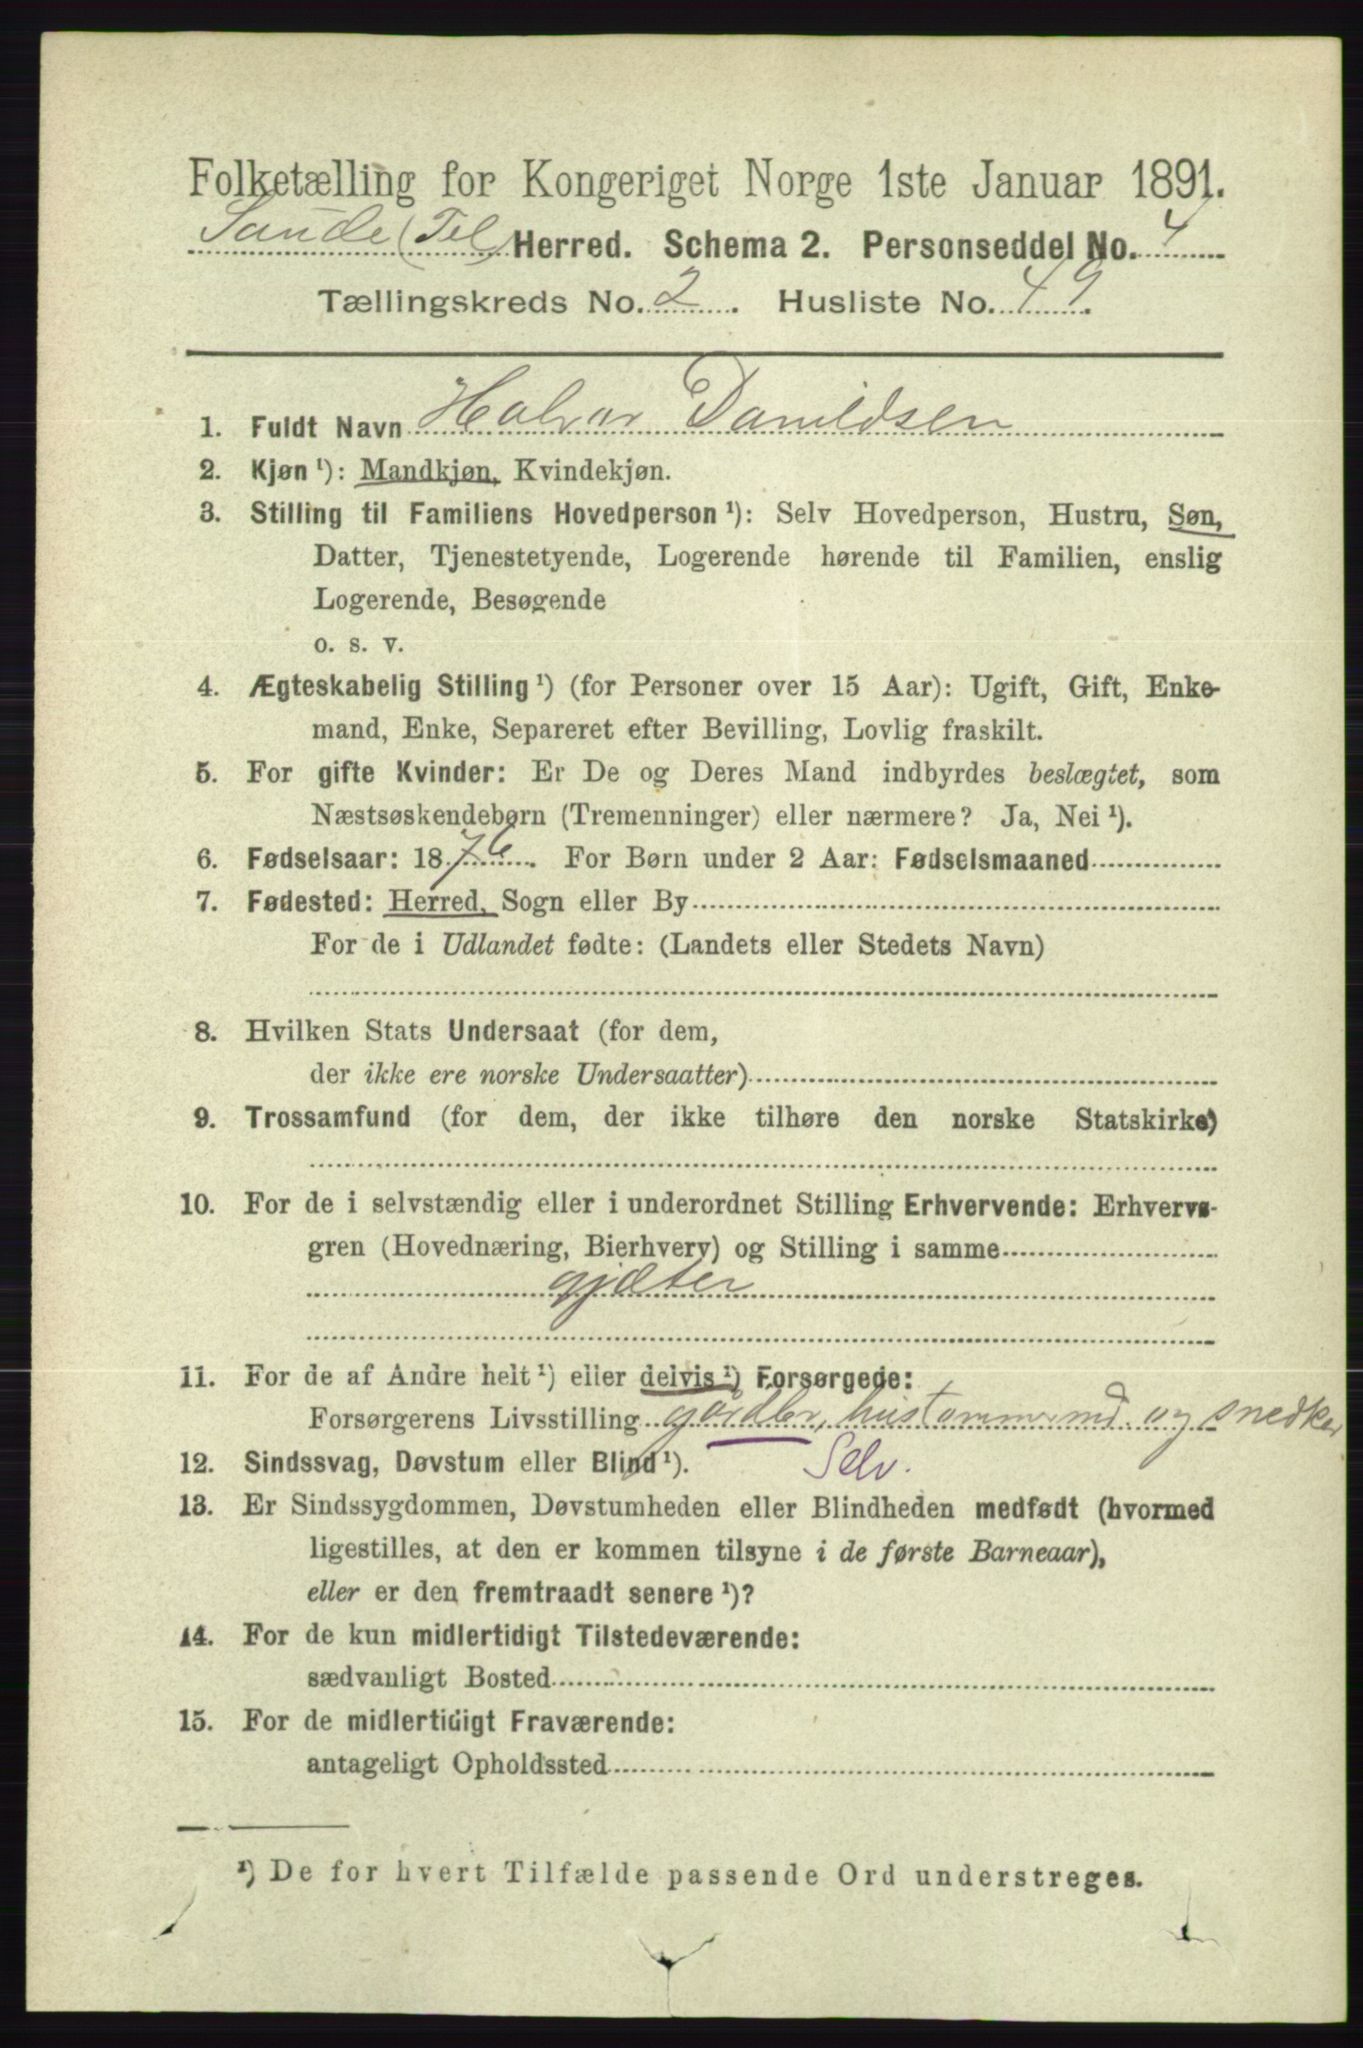 Folketælling for Kongeriget Norge 1ste Januar 1891.
Saude (Tel) Herred. Schema 2. Personseddel No. 4
Tællingskreds No. 2. Husliste No. 49.
1. Fuldt Navn Halvor Danildsen
2. Kjøn ¹): Mandkjøn, Kvindekjøn.
3. Stilling til Familiens Hovedperson ¹): Selv Hovedperson, Hustru, Søn,
Datter, Tjenestetyende, Logerende hørende til Familien, enslig
Logerende, Besøgende
o. s. v.
4. Ægteskabelig Stilling ¹) (for Personer over 15 Aar): Ugift, Gift, Enke-
mand, Enke, Separeret efter Bevilling, Lovlig fraskilt.
5. For gifte Kvinder: Er De og Deres Mand indbyrdes beslægtet, som
Næstsøskendebørn (Tremenninger) eller nærmere? Ja, Nei ¹).
6. Fødselsaar: 1876. For Børn under 2 Aar: Fødselsmaaned
7. Fødested: Herred, Sogn eller By
For de i Udlandet fødte: (Landets eller Stedets Navn)
8. Hvilken Stats Undersaat (for dem,
der ikke ere norske Undersaatter)
9. Trossamfund (for dem, der ikke tilhøre den norske Statskirke)
10. For de i selvstændig eller i underordnet Stilling Erhvervende: Erhvervs-
gren (Hovednæring, Bierhverv) og Stilling i samme
gjæter
11. For de af Andre helt ¹) eller delvis ¹) Forsørgede:
Forsørgerens Livsstilling gårdbr, hustømmermd og snedker
12. Sindssvag, Døvstum eller Blind ¹). Selv.
13. Er Sindssygdommen, Døvstumheden eller Blindheden medfødt (hvormed
ligestilles, at den er kommen tilsyne i de første Barneaar),
eller er den fremtraadt senere ¹)?
14. For de kun midlertidigt Tilstedeværende:
sædvanligt Bosted
15. For de midlertidigt Fraværende:
antageligt Opholdssted
¹) De for hvert Tilfælde passende Ord understreges.